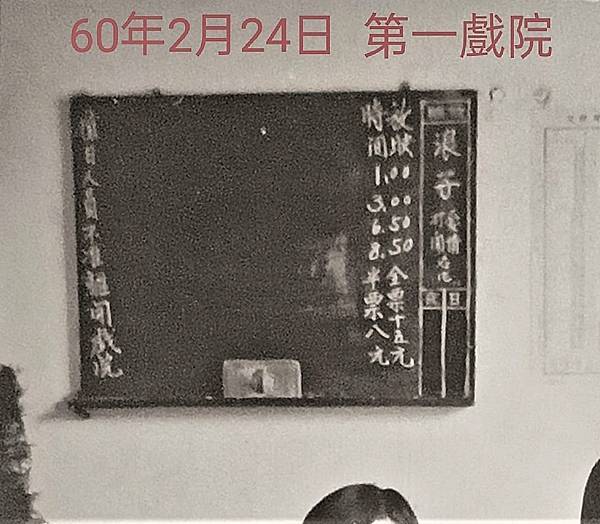 60年2月24日 第一戲院
浪子
愛情
日
放映
時間
1.00
3.00
6.50
8.50
全票十五元
半票八元
值日人員不准離開戲院